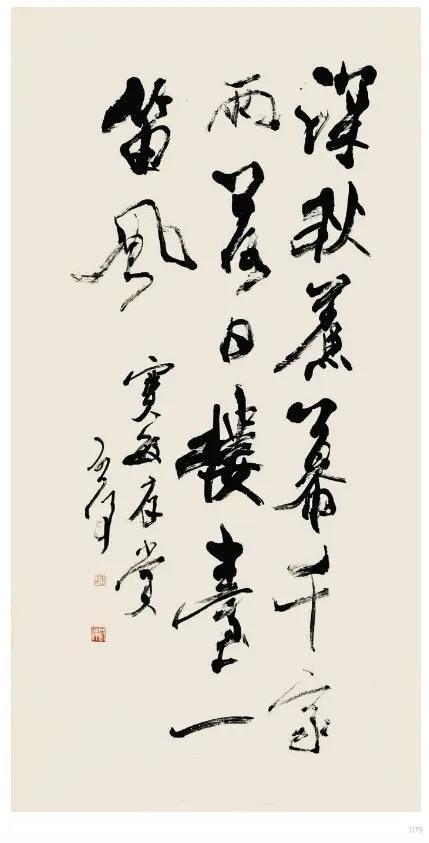 深秋簾幕千家
雨落日樓臺一
笛風
寶敏存賞
073